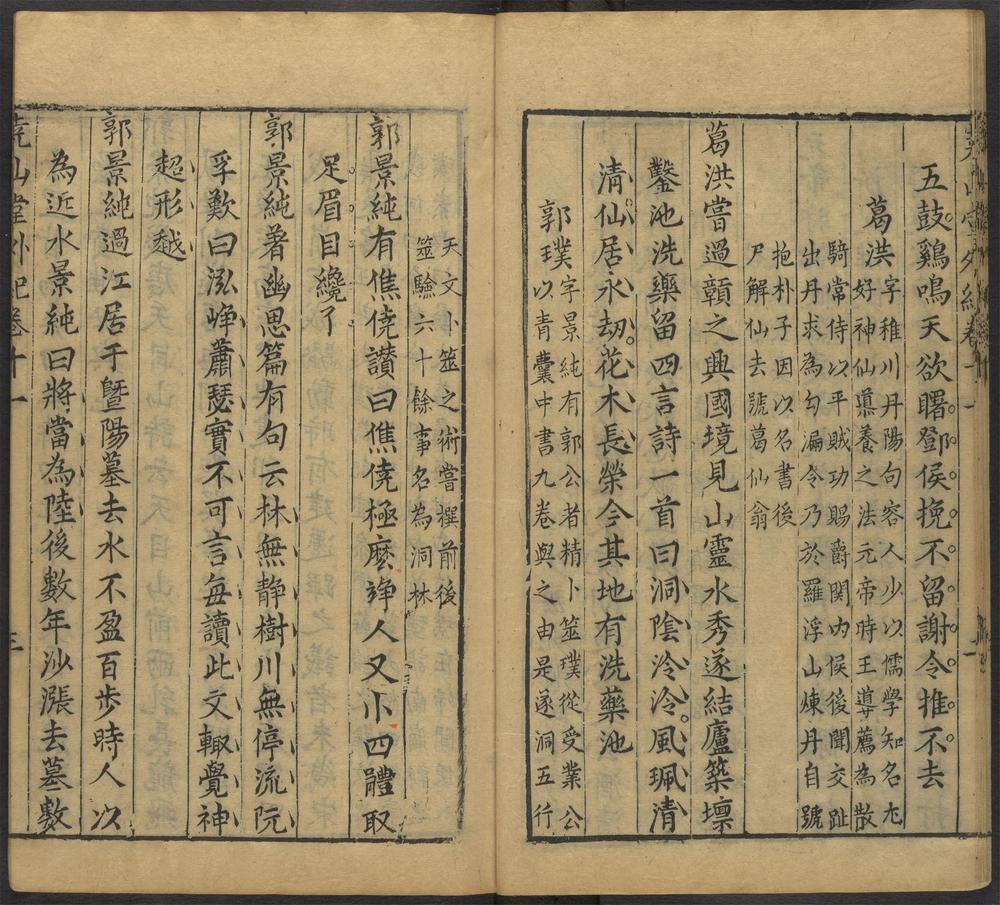 五鼓鷄鳴天欲曙鄧侯挽不留謝令推不去
葛洪
字稚川丹陽句容人少以儒學知名尤
好神仙導養之法元帝時王導薦為散
騎常侍以平賊功賜爵関内侯後聞交趾
出丹求為勾漏令乃於羅浮山煉丹自號
抱朴子因以名書後
尸解仙去號葛仙翁
葛洪嘗過贑之興國境見山靈水秀遂結廬築壇
鑿池洗藥留四言詩一首曰洞陰泠泠風珮清
清仙居永劫花木長榮今其地有洗藥池
郭璞
字景純有郭公者精卜筮璞從受業公
以青囊中書九卷與之由是遂洞五行
天文卜筮之術嘗撰前後
筮驗六十餘事名為洞林
郭景純有僬僥讃曰僬僥極麽竫人又小四體取
足眉目纔了
郭景純著幽思篇有句云林無静樹川無停流阮
孚歎曰泓崢蕭瑟實不可言每讀此文輙覺神
超形越
郭景純過江居于暨陽墓去水不盈百步時人以
為近水景純曰將當為陸後數年沙漲去墓數
堯山堂外紀卷十一